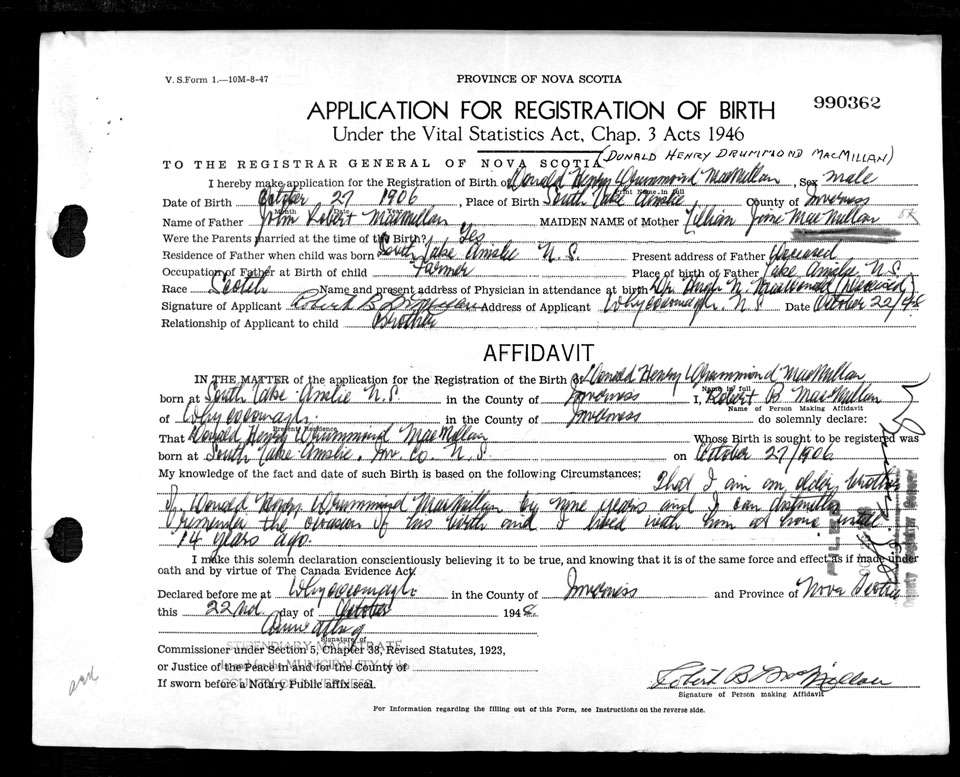 V. S. Form 1.—10M-8-47
PROVINCE OF NOVA SCOTIA
990362
APPLICATION FOR REGISTRATION OF BIRTH
Under the Vital Statistics Act, Chap. 3 Acts 1946
(DONALD HENRY DRUMMOND MACMILLAN)
TO THE REGISTRAR GENERAL OF NOVA SCOTIA
I hereby make application for the Registration of Birth of Donald Henry Drummond MacMillan, Sex male
Print Name in full
Date of Birth October 27 1906, Place of Birth South Lake Ainslie County of Inverness
Month Date Year
Name of Father John Robert MacMillan MAIDEN NAME of Mother Lillian Jane MacMillan OK
Were the Parents married at the time of the Birth? Yes
Residence of Father when child was born South Lake Ainslie N.S. Present address of Father Deceased
Occupation of Father at Birth of child Farmer Place of birth of Father Lake Ainslie N.S.
Race Scotch Name and present address of Physician in attendance at birth Dr. Hugh N. MacDonald (Deceased)
Signature of Applicant Robert B MacMillan Address of Applicant Whycocomagh. N.S Date October 22/48
Relationship of Applicant to child Brother
AFFIDAVIT
IN THE MATTER of the application for the Registration of the Birth of Donald Henry Drummond MacMillan
Name in full
born at South Lake Ainslie N.S. in the County of Inverness I, Robert B. MacMillan
Name of Person Making Affidavit
of Whycocomagh. in the County of Inverness do solemnly declare:
Present Residence
That Donald Henry Drummond MacMillan Whose Birth is sought to be registered was
born at South Lake Ainslie. Inv. Co. N.S. on October 27/1906
My knowledge of the fact and date of such Birth is based on the following Circumstances: That I am an older brother
of Donald Henry Drummond MacMillan by nine years and I can distinctly
remember the occasion of his birth and I lived with him at home until
14 years ago.
I make this solemn declaration conscientiously believing it to be true, and knowing that it is of the same force and effect as if made under
oath and by virtue of The Canada Evidence Act.
Declared before me at Whycocomagh in the County of Inverness and Province of Nova Scotia
this 22nd day of October 1948.
Signature of
Commissioner under Section 5, Chapter 38, Revised Statutes, 1923,
STIPENDIARY MAGISTRATE
or Justice of the Peace in and for the County of
MUNICIPALITY of the
COUNTY OF INVERNESS
If sworn before a Notary Public affix seal.
Robert B MacMillan
Signature of Person making Affidavit
For Information regarding the filling out of this Form, see Instructions on the reverse side.
FILED